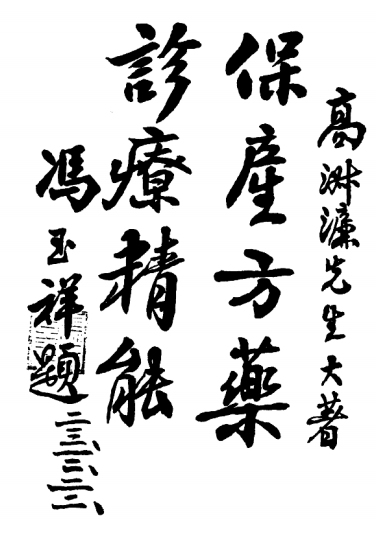 高淑濂先生大著
保產方藥
診療精能
馮玉祥題 二三、